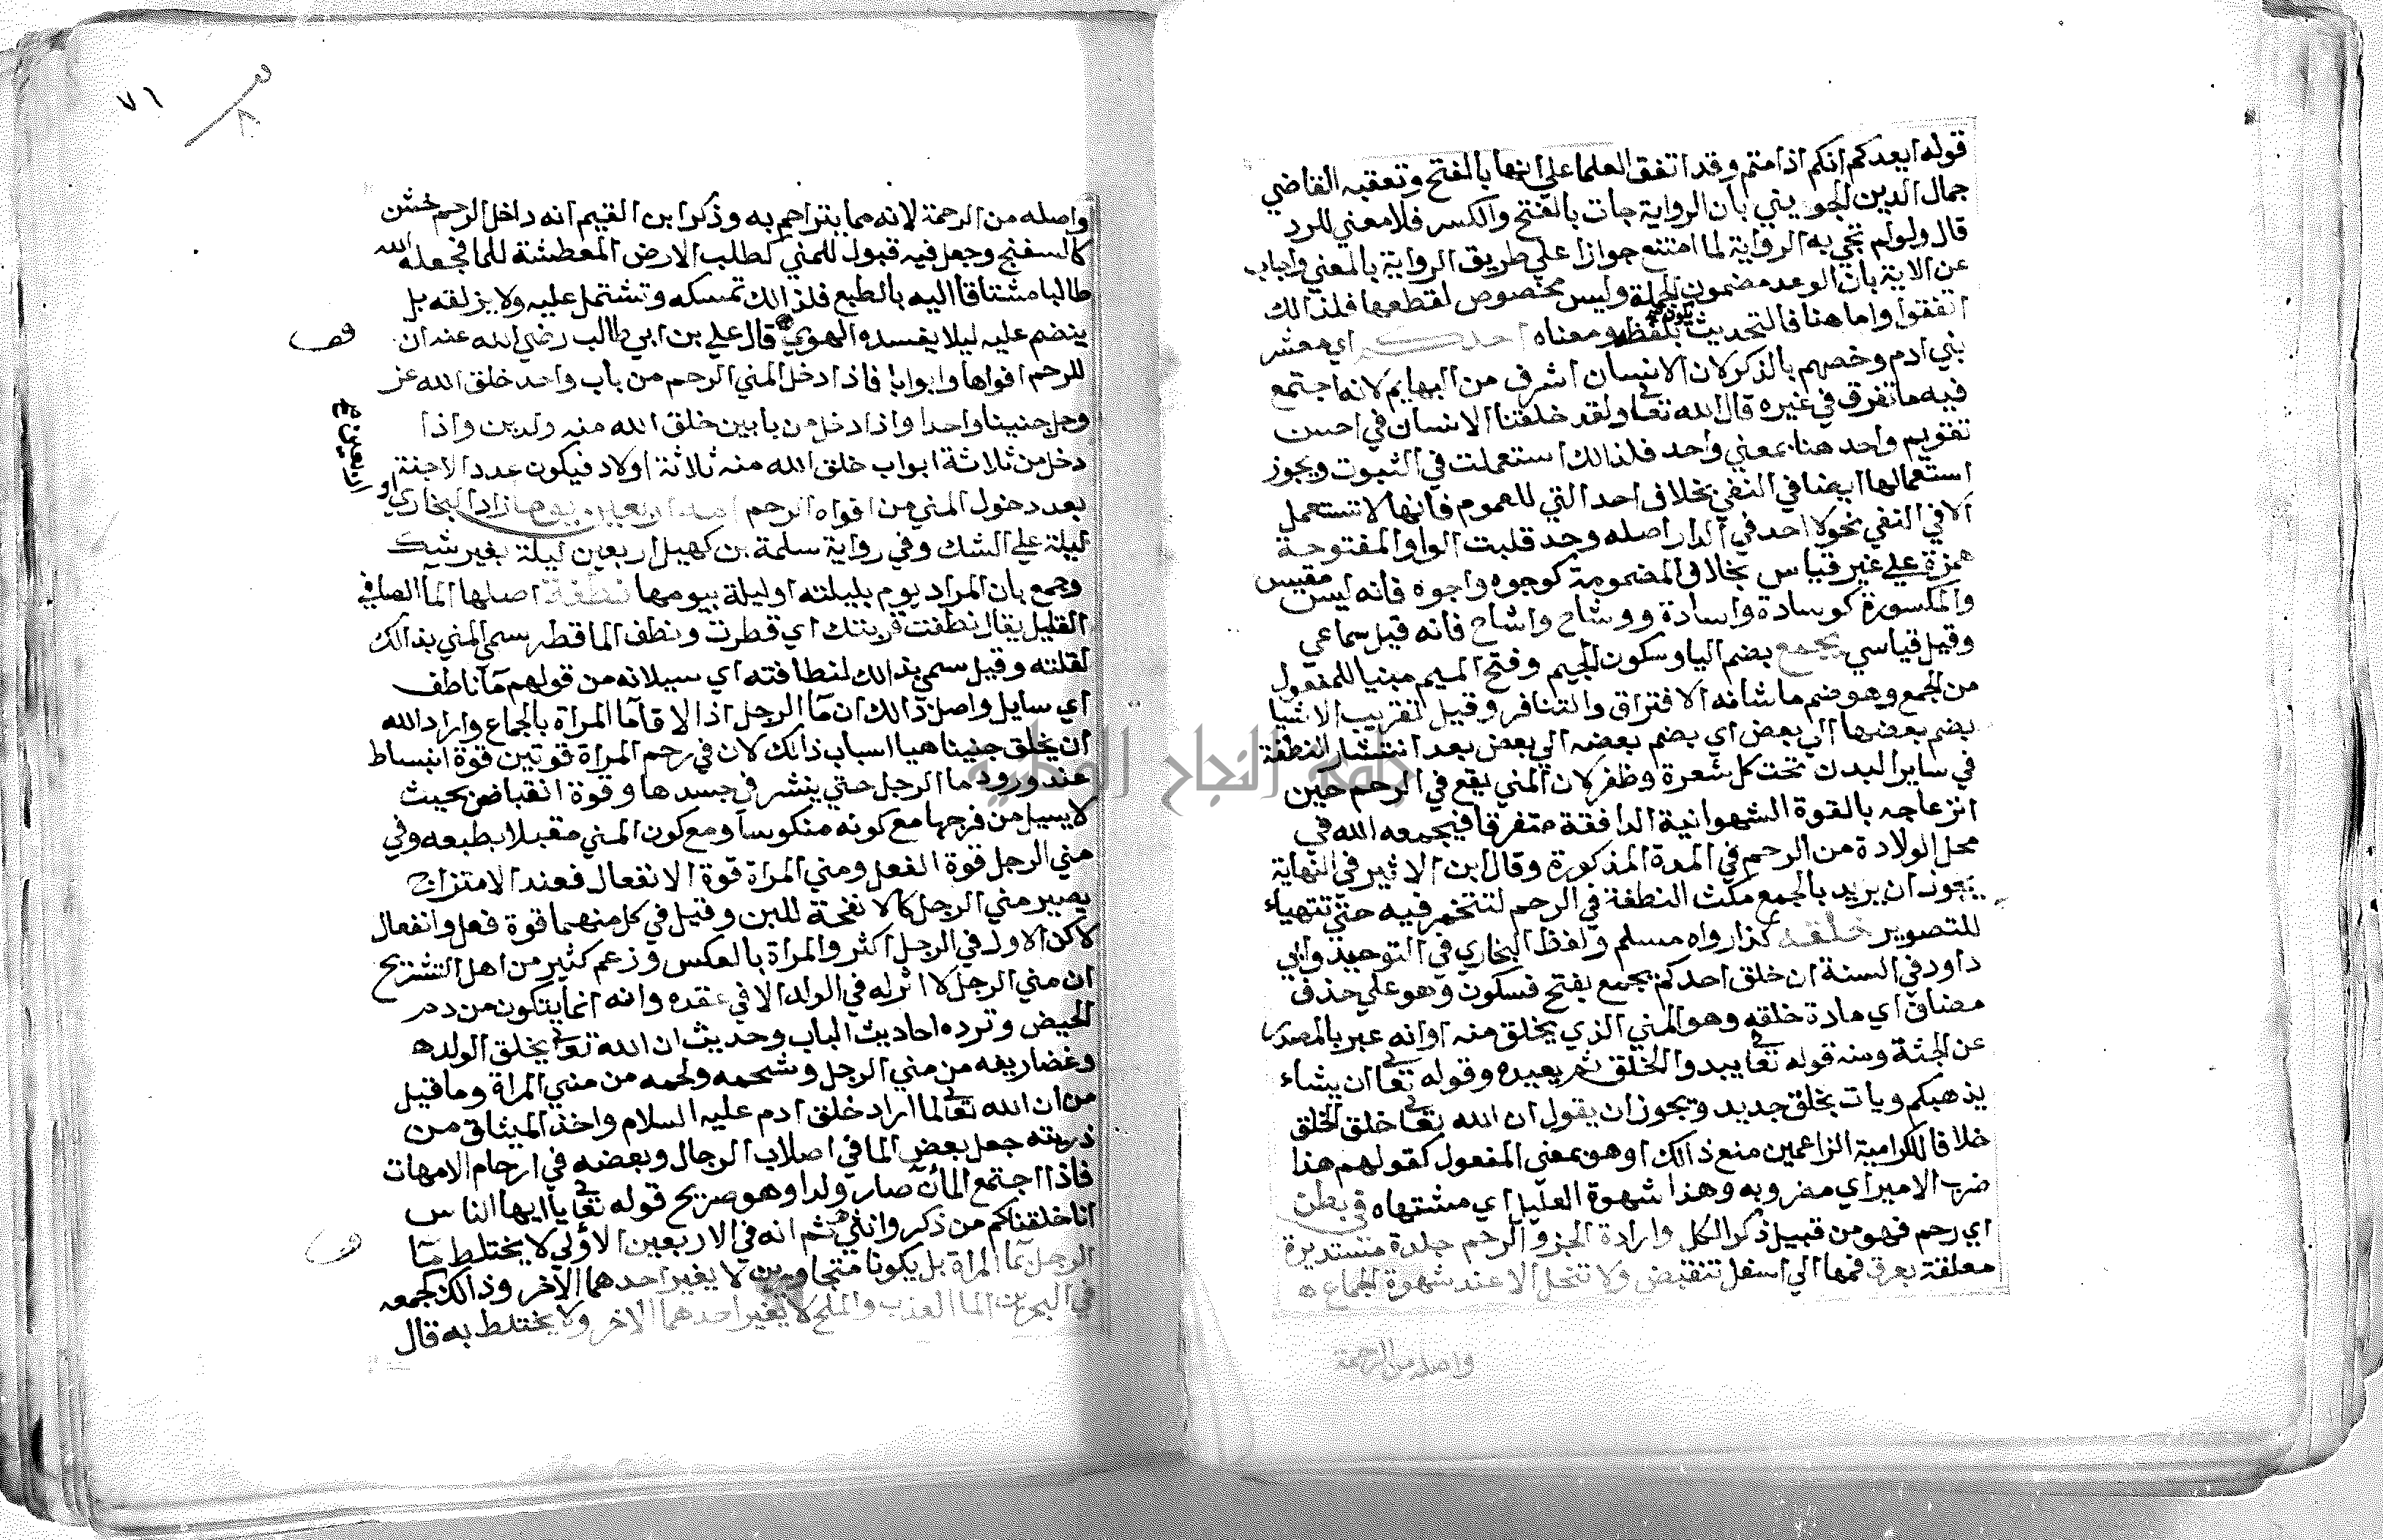 قوله ايعدكم انكم اذا متم وقد اتفق العلما علي انها بالفتح وتعقبه القاضي
جمال الدين الجويني بان الرواية جات بالفتح والكسر فلا معني للرد
قال ولو لم تجي به الرواية لما امتنع جوازا علي طريق الرواية بالمعني واجاب
عن الاية بان الوعد مضمون الجملة وليس مخصوص لفظها فلذالك
اتفقوا واما هنا فالتحديث يكون بلفظه ومعناه احدكم اي معشر
بني ادم وخصهم بالذكر لان الانسان اشرف من البهايم لانه اجتمع
فيه ما تفرق في غيره قال الله تعا ولقد خلقنا الانسان في احسن
تقويم واحد هنا بمعني واحد فلذالك استعملت في الثبوت ويجوز
استعمالها ايضا في النفي بخلاف احد التي للعموم فانها لا تستعمل
الا في النفي نحو لا احد في الدار اصله وحد قلبت الواو المفتوحة
همزة علي غير قياس بخلاف المضمومة كوجوه واجوه فانه مقيس
والمكسورة كوسادة واسادة ووشاح واشاح فانه قيل سماعي
وقيل قياسي يجمع بضم اليا وسكون الجيم وفتح الميم مبنيا للمفعول
من الجمع وهو ضم ما شانه الافتراق والتنافر وقيل تقريب الاشيا
بضم بعضها الي بعض اي يضم بعضه الي بعض بعد انتشار النطفة
في ساير البدن تحت كل شعرة وظفر لان المني يقع في الرحم حين
انزعاجه بالقوة الشهوانية الدافقة متفرقا فيجمعه الله في
محل الولادة من الرحم في المدة المذكورة وقال ابن الاثير في النهاية
يجوز ان يريد بالجمع مكث النطفة في الرحم لتتخمر فيه حتي تتهياء
للتصوير خلقه كذا رواه مسلم ولفظ البخاري في التوحيد وابي
داود في السنة ان خلق احدكم يجمع بفتح فسكون وهو علي حذف
مضاف اي مادة خلقه وهو المني الذي يخلق منه او انه عبر بالمصدر
عن الجثة ومنه قوله تعا يبدوا الخلق ثم يعيده وقوله تعا ان يشاء
يذهبكم ويات بخلق جديد ويجوز ان يقول ان الله تعا خلق الخلق
خلافا للكرامية الزاعمين منع ذالك او هو بمعني المفعول كقولهم هذا
ضرب الامير اي مضروبه وهذا شهوة العليل اي مشتهاه في بطن
اي رحم فهو من قبيل ذكر الكل وارادة الجزو الرحم جلدة مستديرة
معلقة بعرق فمها الي اسفل تنقبض ولا تنحل الا عند شهوة الجماع
واصله من الرحمة
٧٦
واصله من الرحمة لانه مما يتراحم به وذكر ابن القيم انه داخل الرحم خشن
كالسفنج وجعل فيه قبول للمني كطلب الارض المعطشة للما فجعله الله
طالبا مشتاقا اليه بالطبع فلذالك تمسكه وتشتمل عليه ولا يزلقه بل
ينضم عليه ليلا يفسده الهوي قال علي بن ابي طالب رضي الله عنه ان
للرحم افواها وابوابا فاذا دخل المني الرحم من باب واحد خلق الله عز
وجل جنينا واحدا واذا دخل من بابين خلق الله منه ولدين واذا
دخل من ثلاثة ابواب خلق الله منه ثلاثة اولاد فيكون عدد الاجنة
بعدد دخول المني من افواه الرحم اربعين يوما زاد البخاري او
اربعين
ليلة علي الشك وفي رواية سلمة بن كهيل اربعين ليلة بغير شك
وجمع بان المراد يوم بليلته او ليلة بيومها نطفة اصلها الما الصافي
القليل يقال نطفت قربتك اي قطرت ونطف الما قطر سمي المني بذالك
لقلته وقيل سمي بذالك لنطافته اي سيلانه من قولهم ما ناطف
اي سايل واصل ذالك ان ما الرجل اذا لاقا ما المراة بالجماع واراد الله
ان يخلق جنينا هيا اسباب ذالك لان في رحم المراة قوتين قوة انبساط
عند ورود ما الرجل حتي ينشر في جسدها وقوة انقباض بحيث
لا يسيل من فرجها مع كونه منكوسا ومع كون المني مقبلا بطبعه وفي
مني الرجل قوة الفعل ومني المراة قوة الانفعال فعند الامتزاج
يصير مني الرجل كالانفحة للبن وقيل في كل منهما قوة فعل وانفعال
لاكن الاول في الرجل اكثر والمراة بالعكس وزعم كثير من اهل التشريح
ان مني الرجل لا اثر له في الولد الا في عقده وانه انما يتكون من دم
الحيض وترده احاديث الباب وحديث ان الله تعا يخلق الولد
وغضاريفه من مني الرجل وشحمه ولحمه من مني المراة وما قيل
من ان الله تعا لما اراد خلق ادم عليه السلام واخذ الميثاق من
ذريته جعل بعض الما في اصلاب الرجال وبعضه في ارحام الامهات
فاذا اجتمع المأن صار ولدا وهو صريح قوله تعا يا ايها الناس
انا خلقناكم من ذكر وانثي ثم انه في الاربعين الاولي لا يختلط مآ
الرجل بما المراة بل يكونا متجاورين لا يغير احدهما الاخر وذالك كجمعه
في البحرين الما العذب والملح لا يغير احدهما الاخر ولا يختلط به قال
جامعة النجاح الوطنية